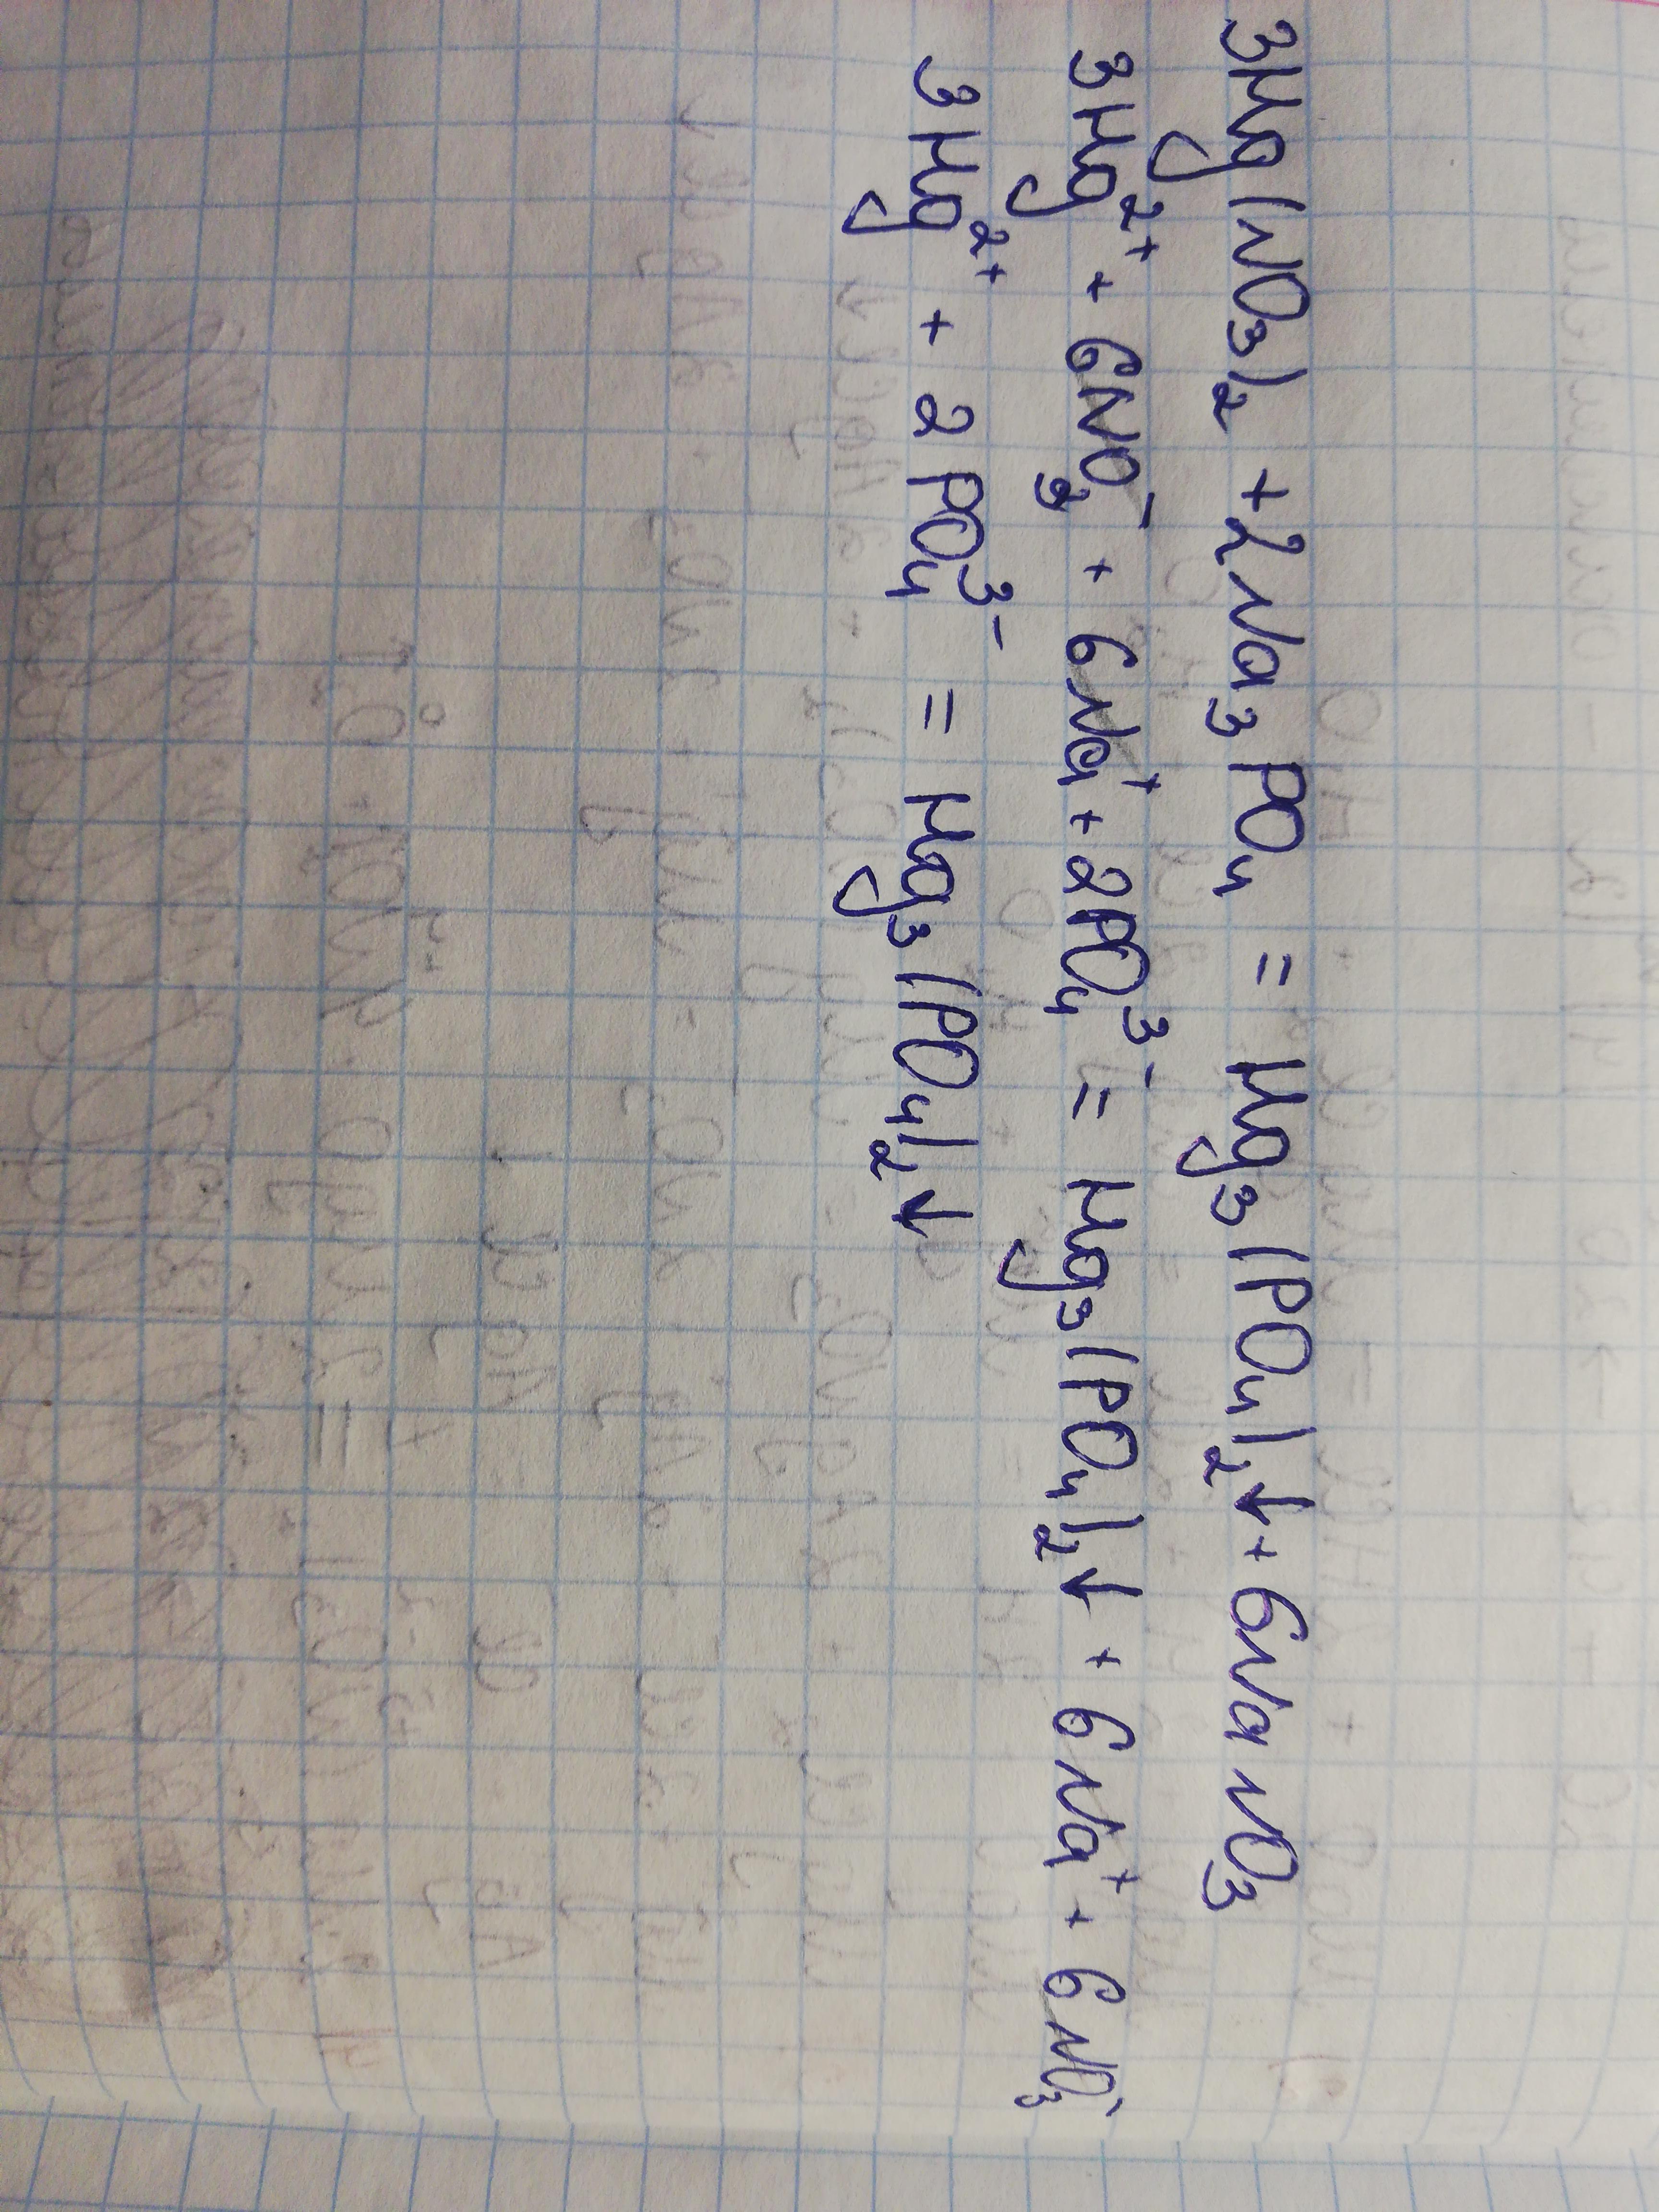 3Mg(NO₃)₂ + 2Na₃PO₄ = Mg₃(PO₄)₂↓ + 6NaNO₃
3Mg²⁺ + 6NO₃⁻ + 6Na⁺ + 2PO₄³⁻ = Mg₃(PO₄)₂↓ + 6Na⁺ + 6NO₃⁻
3Mg²⁺ + 2PO₄³⁻ = Mg₃(PO₄)₂↓